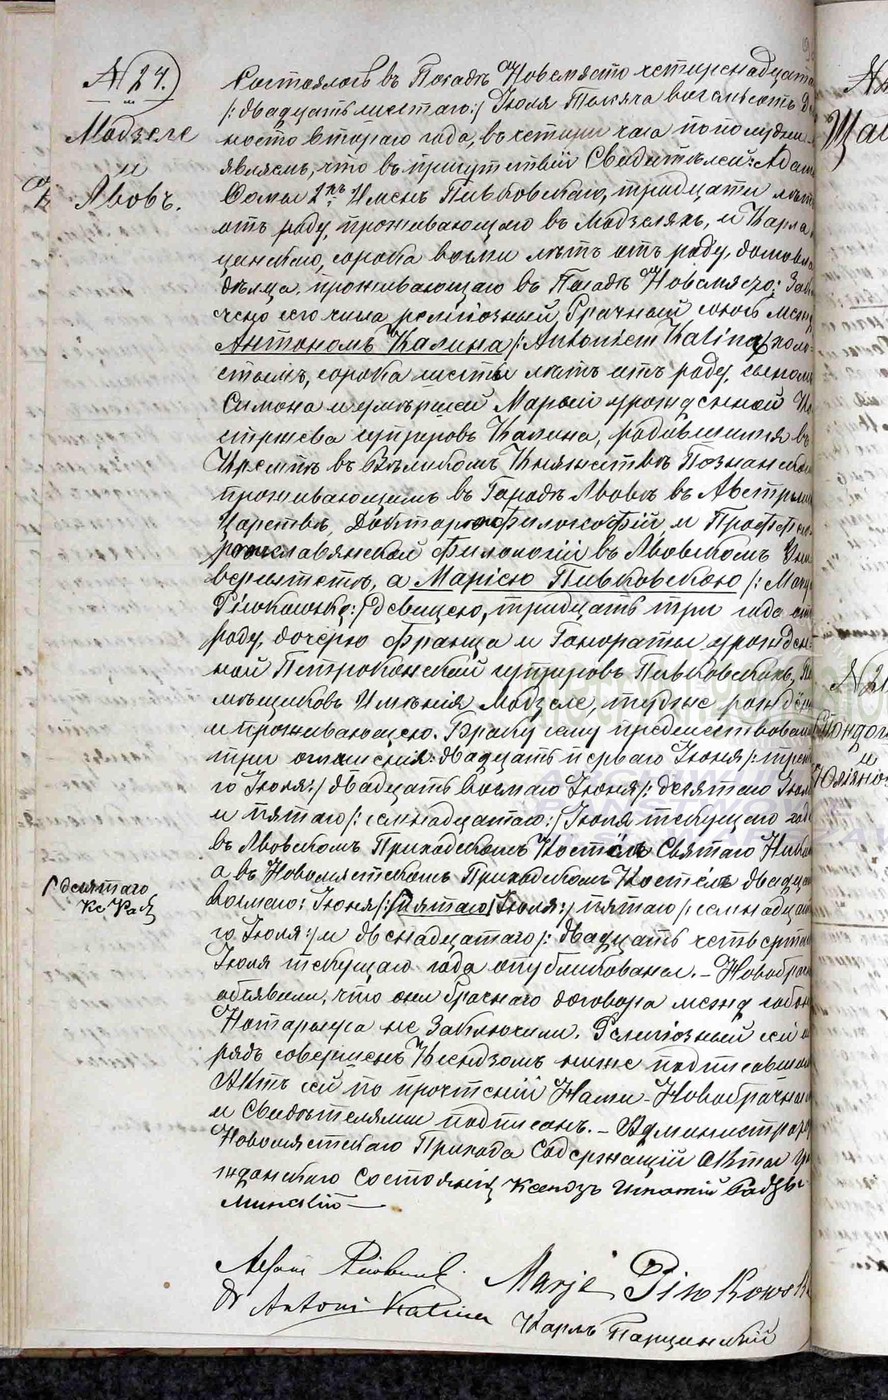 № 24.
Модзеле
и
Львовъ.
Состоялось въ Посадѣ Новемясто четырнадцата
/: двадцать шестаго:/ Іюля Тысяча восемьсотъ Де
носто втораго года, въ четыри часа пополудни.
являемъ, что въ присутствіи Свидѣтелей Адама
Ѳомы 2хъ Именъ Пивковскаго, тридцати лѣтъ
отъ роду, проживающаго въ Модзеляхъ, и Карла
цинскаго, сорока восьми лѣтъ отъ роду, домовла
дѣльца, проживающаго въ Посадѣ Новемясто; За
чено сего числа религіозный Брачный союзъ между
Антономъ Калина /: Antoniem Kalina :/ холо
стымъ, сорока шести лѣтъ отъ роду, сыномъ
Симона и умершей Марыи урожденной
супруговъ Калина, родившимся въ
Кремпѣ въ Великомъ Княжествѣ Познанскомъ
проживающимъ въ Городѣ Львовѣ въ Австрыйск
Царствѣ, Докторомъ Философіи и Профессо
ромъ славянской Филологіи въ Львовскомъ Уни
верситетѣ, а Маріею Пивковскою /: Maryą
Piwkowską :/ девицею, тридцать три года отъ
роду, дочерю Франца и Гонораты урожден
ной Петроконской супруговъ Пивковскихъ, По
мѣщиковъ Имѣнія Модзеле, тудже рожден
и проживающею. Браку сему предшествовали
три оглашенія: двадцать перваго Іюня /: треть
го Іюля:/ двадцать восмаго Іюня /: десятаго Іюля
и пятаго /: семнадцатаго:/ Іюля текущаго года
въ Львовскомъ Приходскомъ Костёлѣ Святаго Никола
а въ Новомястскомъ Приходскомъ Костёлѣ двадца
восмаго: Іюня /: Іюля:/ пятаго /: семнадцат
десятаго
го Іюля:/ и двенадцатаго /: двадцать четверта
Іюля текущаго года опубликованы. – Новобрачн
объявили, что они Брачнаго договора между собою
Нотаріуса не Заключили. Религіозный сей об
рядъ совершенъ Ксендзомъ ниже подписавшим
Актъ сей по прочтеніи Нами – Новобрачными
и Свидѣтелями подписанъ. – Администраторъ
Новомястскаго Прихода Содержащій Акты Гра
жданскаго Состоянія Ксендзъ Игнатій Радзи
минскій —
Adam Piwkowski. Marje Piwkowska
Dr Antoni Kalina Карлъ Парцинскій